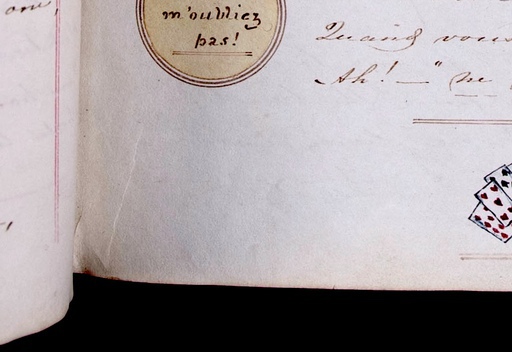 m'oubliez
pas!
Quand vous
Ah! — " ne